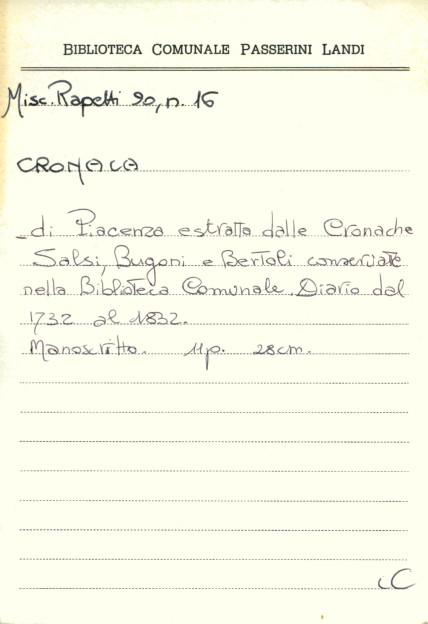 BIBLIOTECA COMUNALE PASSERINI LANDI
Misc. Rapetti 20, n. 16
CRONACA
_ di Piacenza estratta dalle Cronache
Salsi, Bugoni e Bertoli conservate
nella Biblioteca Comunale. Diario dal
1732 al 1832.
Manoscritto. 11p. 28cm.